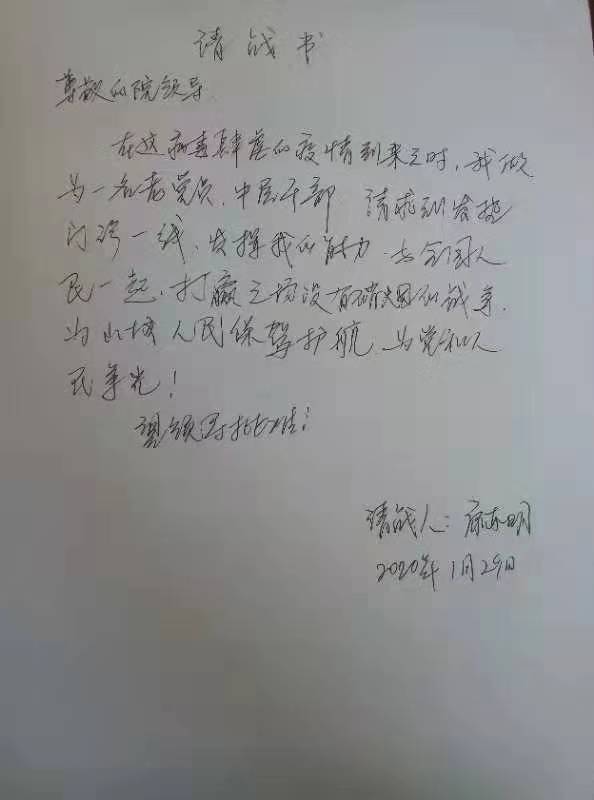 请战书
尊敬的院领导
在这病毒肆虐的疫情到来之时，我做
为一名老党员，中层干部 请求到发热
门诊一线，发挥我的能力 与全国人
民一起，打赢这场没有硝烟的战争，
为山城人民保驾护航 为党和人
民争光！
望领导批准！
请战人：东明
2020年1月29日